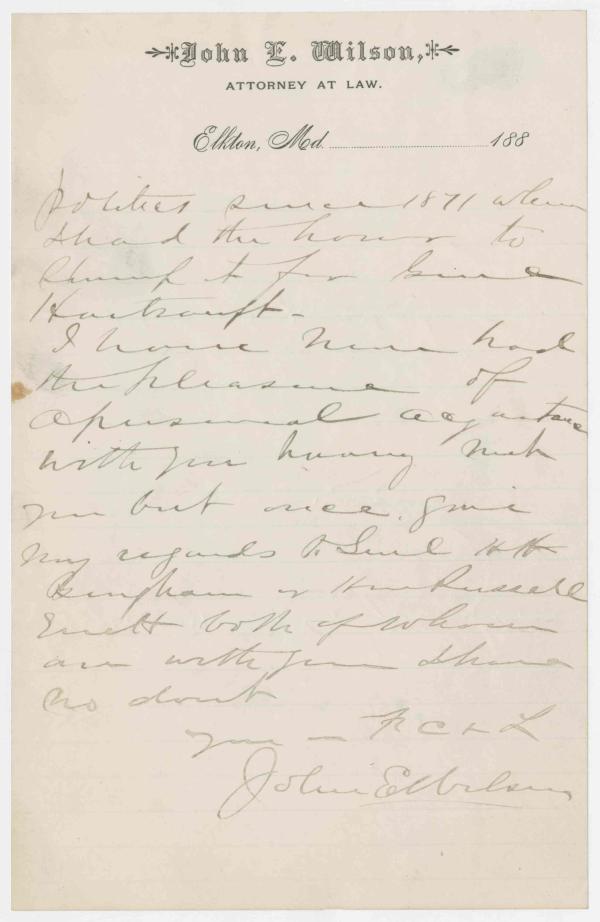 John E. Wilson,
ATTORNEY AT LAW.
Elkton, Md. 188
Politics since 1871 when
I had the honor to
Stump it for Genl
Hartranft -
I have never had
the pleasure of
a personal acquaintance
with you having met
you but once. give
my regards to Genl HH
Bingham & Hon Russell
Errett both of whom
are with you I have
no doubt
Your — F C & L
John E Wilson